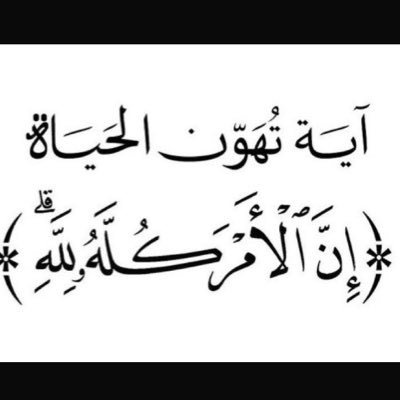 آيَة تُهَوِّن الحَيَاة
﴿ إِنَّ ٱلْأَمْرَ كُلَّهُۥ لِلَّهِۗ ﴾